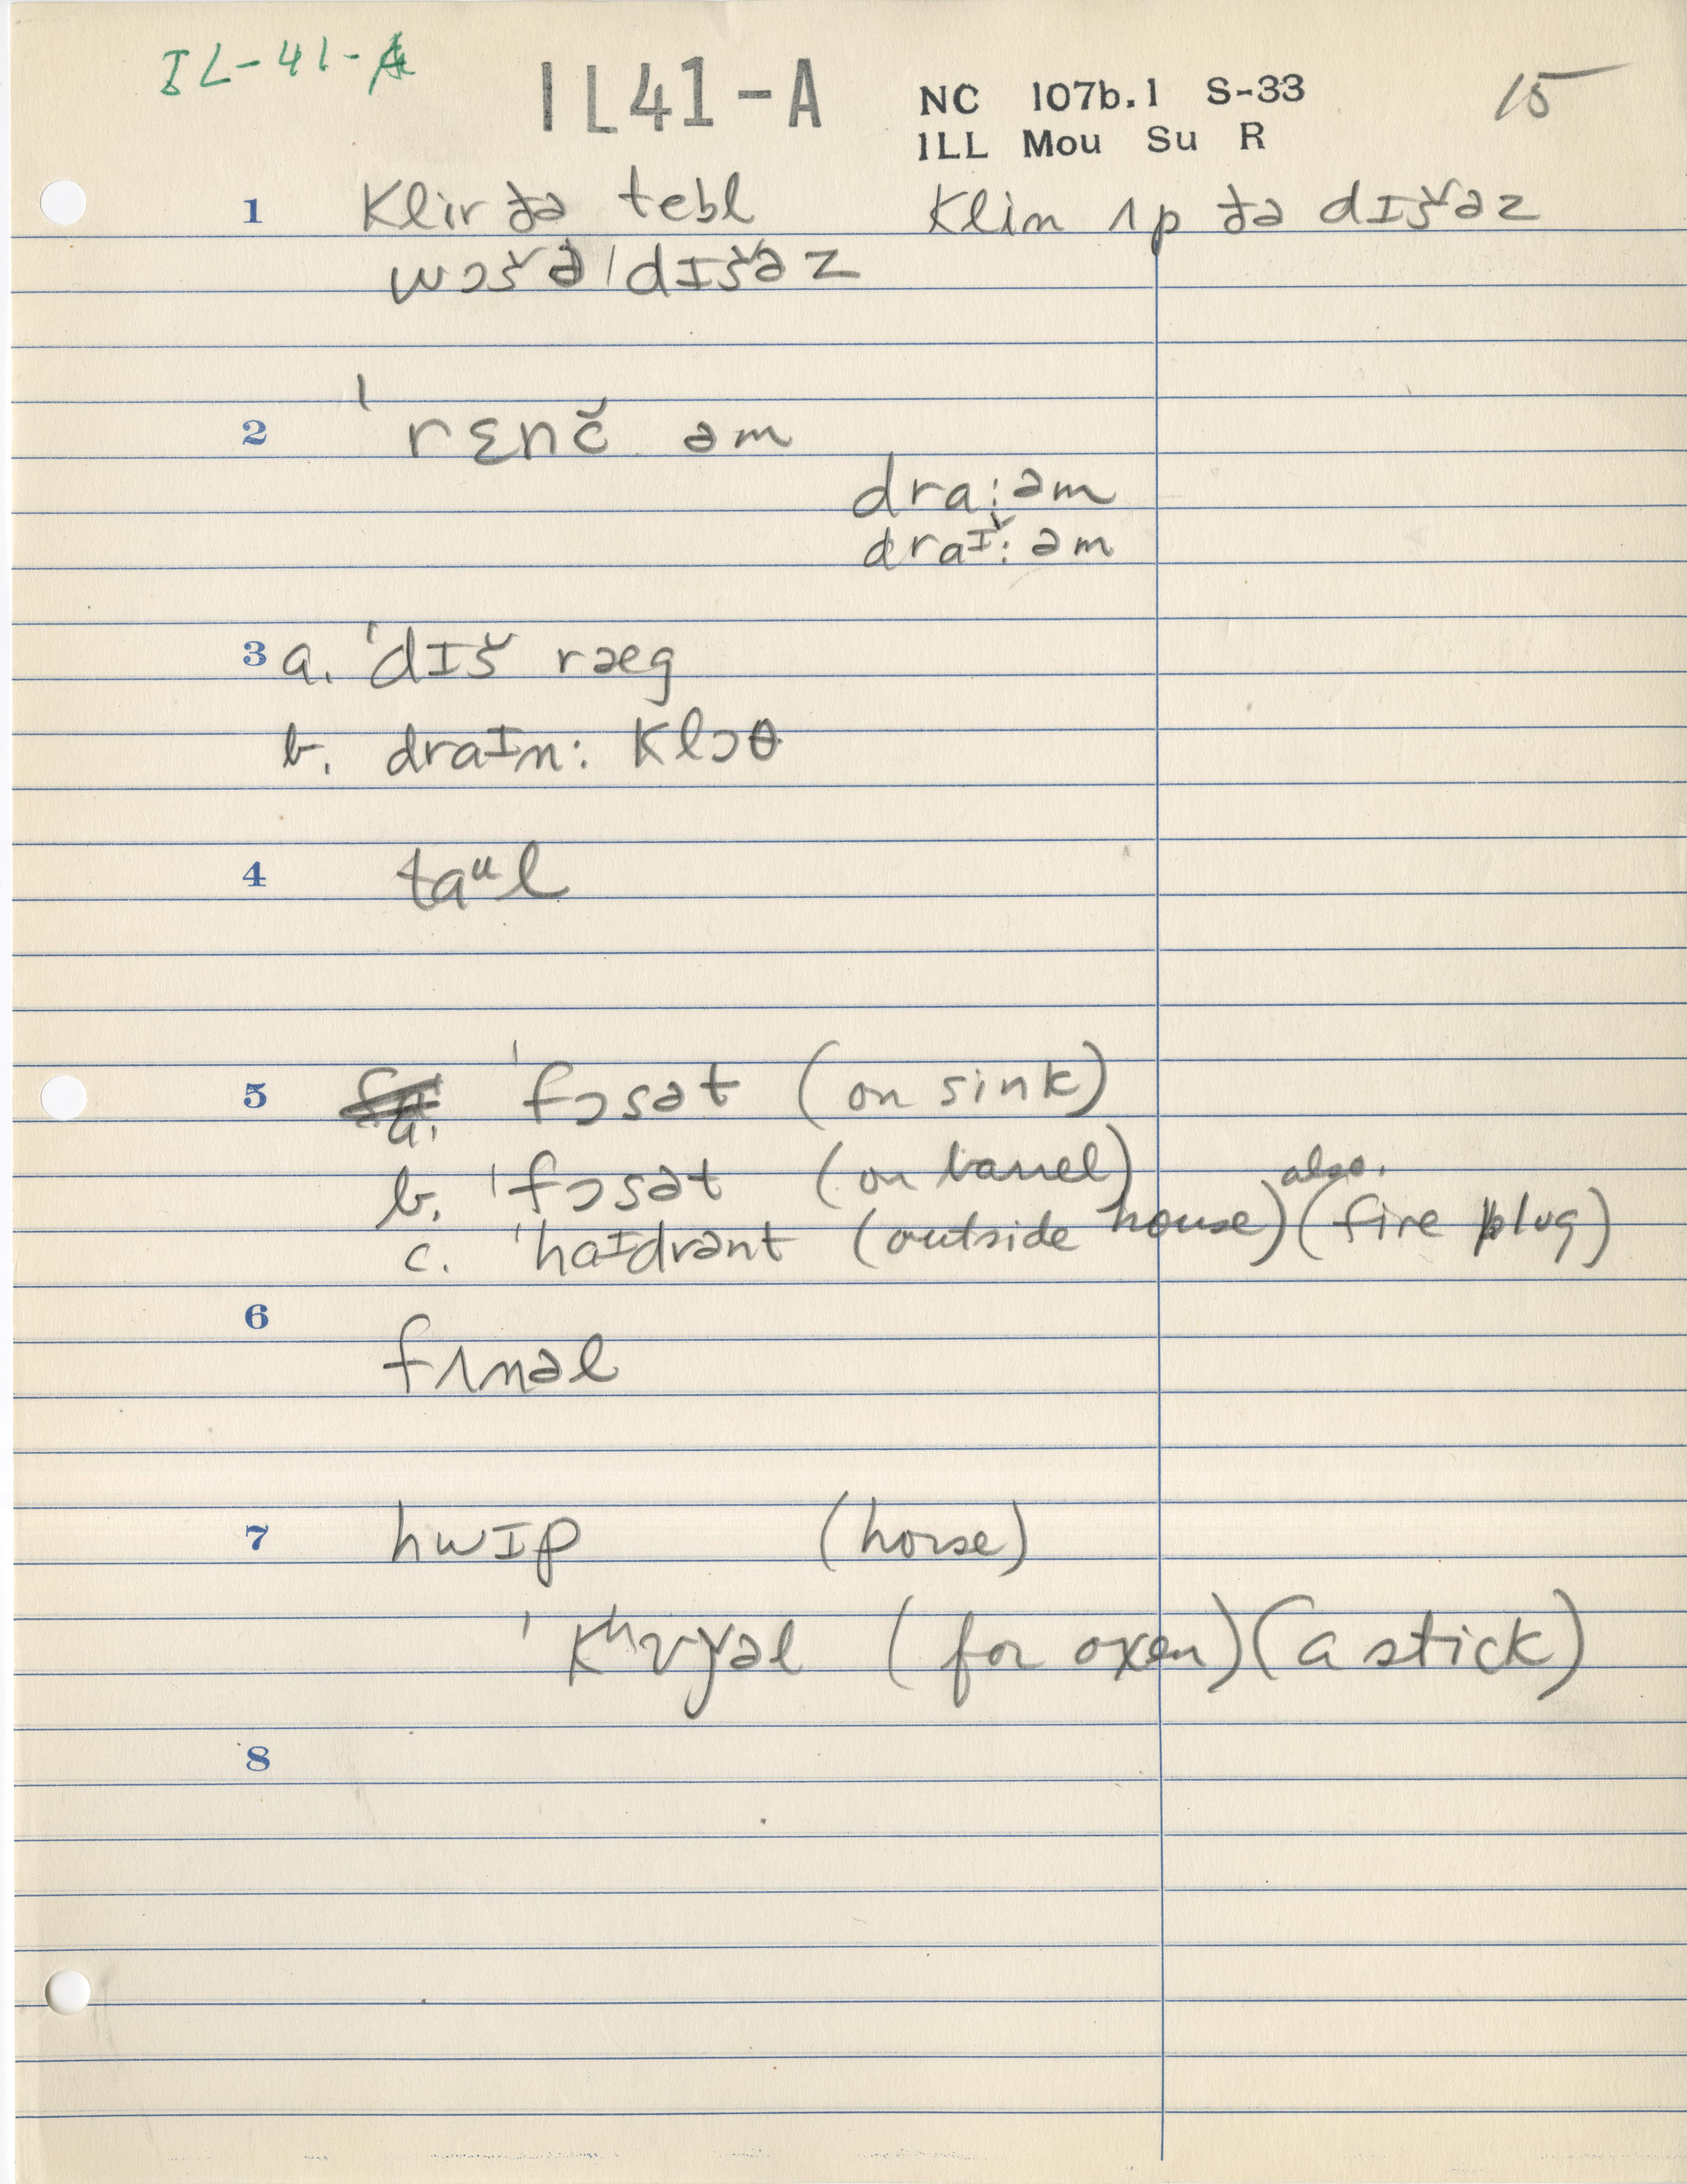 IL-41-A
IL41-A NC 107b.1 S-33 15
ILL Mou Su R
1 klir ðə tebl klin ʌp ðə dɪšəz
wɔšə ˈdɪšəz
2 ˈrɛnč əm
dra:əm
draɪ̆:əm
3 a. ˈdɪš ræg
b. draɪn: klɔθ
4 taᵘl
5 a. ˈfɔsət (on sink)
b. ˈfɔsət (on barrel)
c. ˈhaɪdrənt (outside house) (also, fire plug)
6 fʌnəl
7 hwɪp (horse)
(for oxen) (a stick)
8